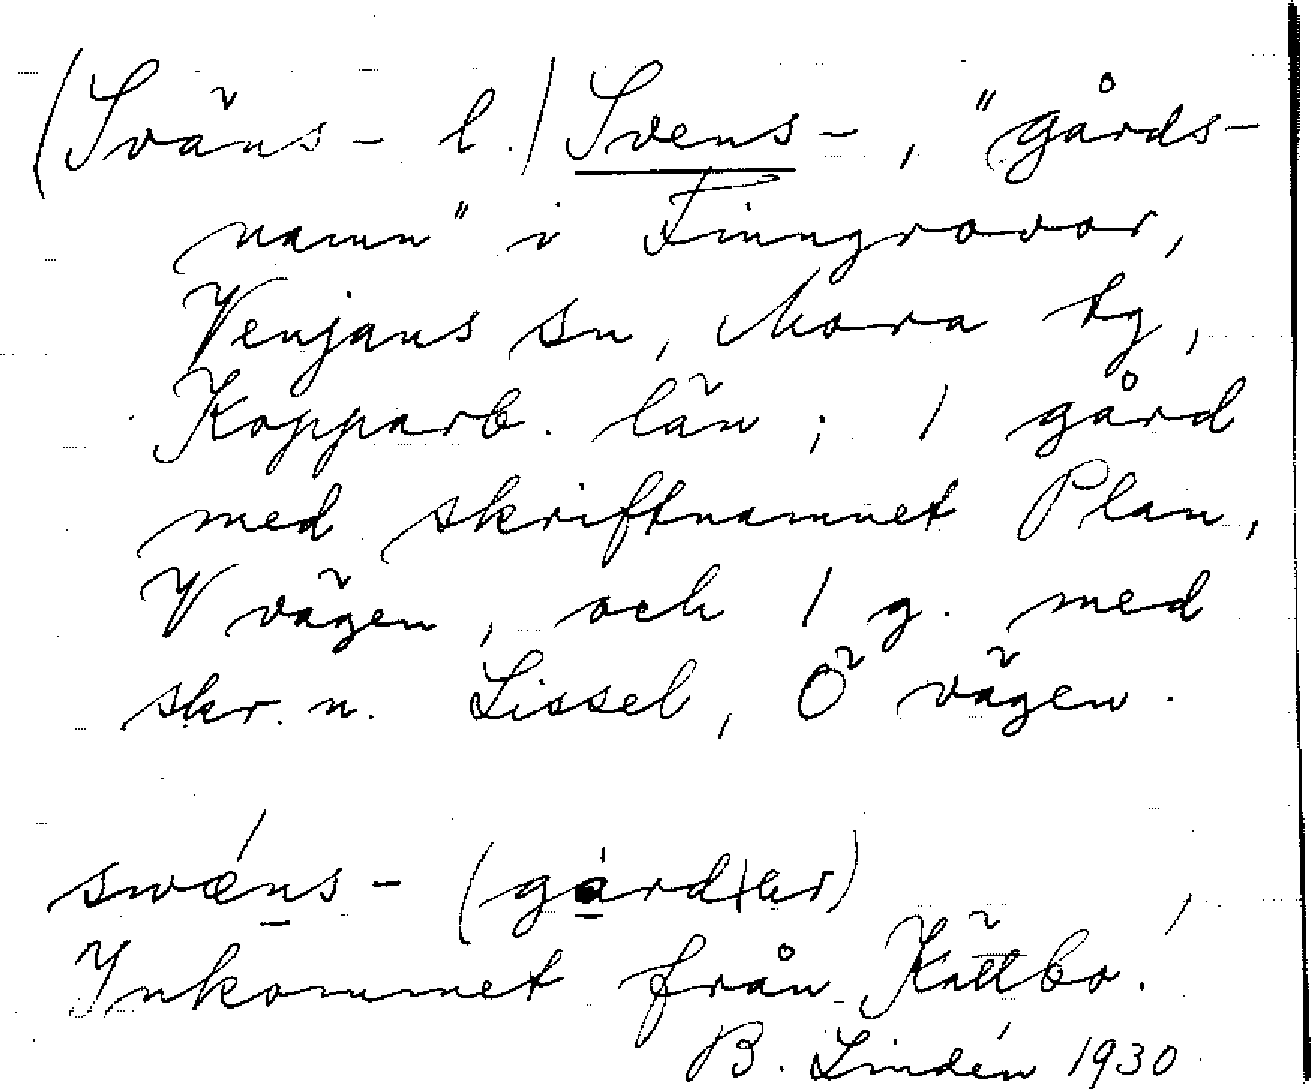 (Sväns- l.) Svens-, "gårds-
namn" i Finngruvor,
Venjans sn, Mora tg,
Kopparb. län; 1 gård
med skriftnamnet Plan,
V vägen, och 1 g. med
skr. n. Lissel, Ö vägen.
swǽns- (gård)er)
Inkommet från Kättbo.
B. Lindén 1930